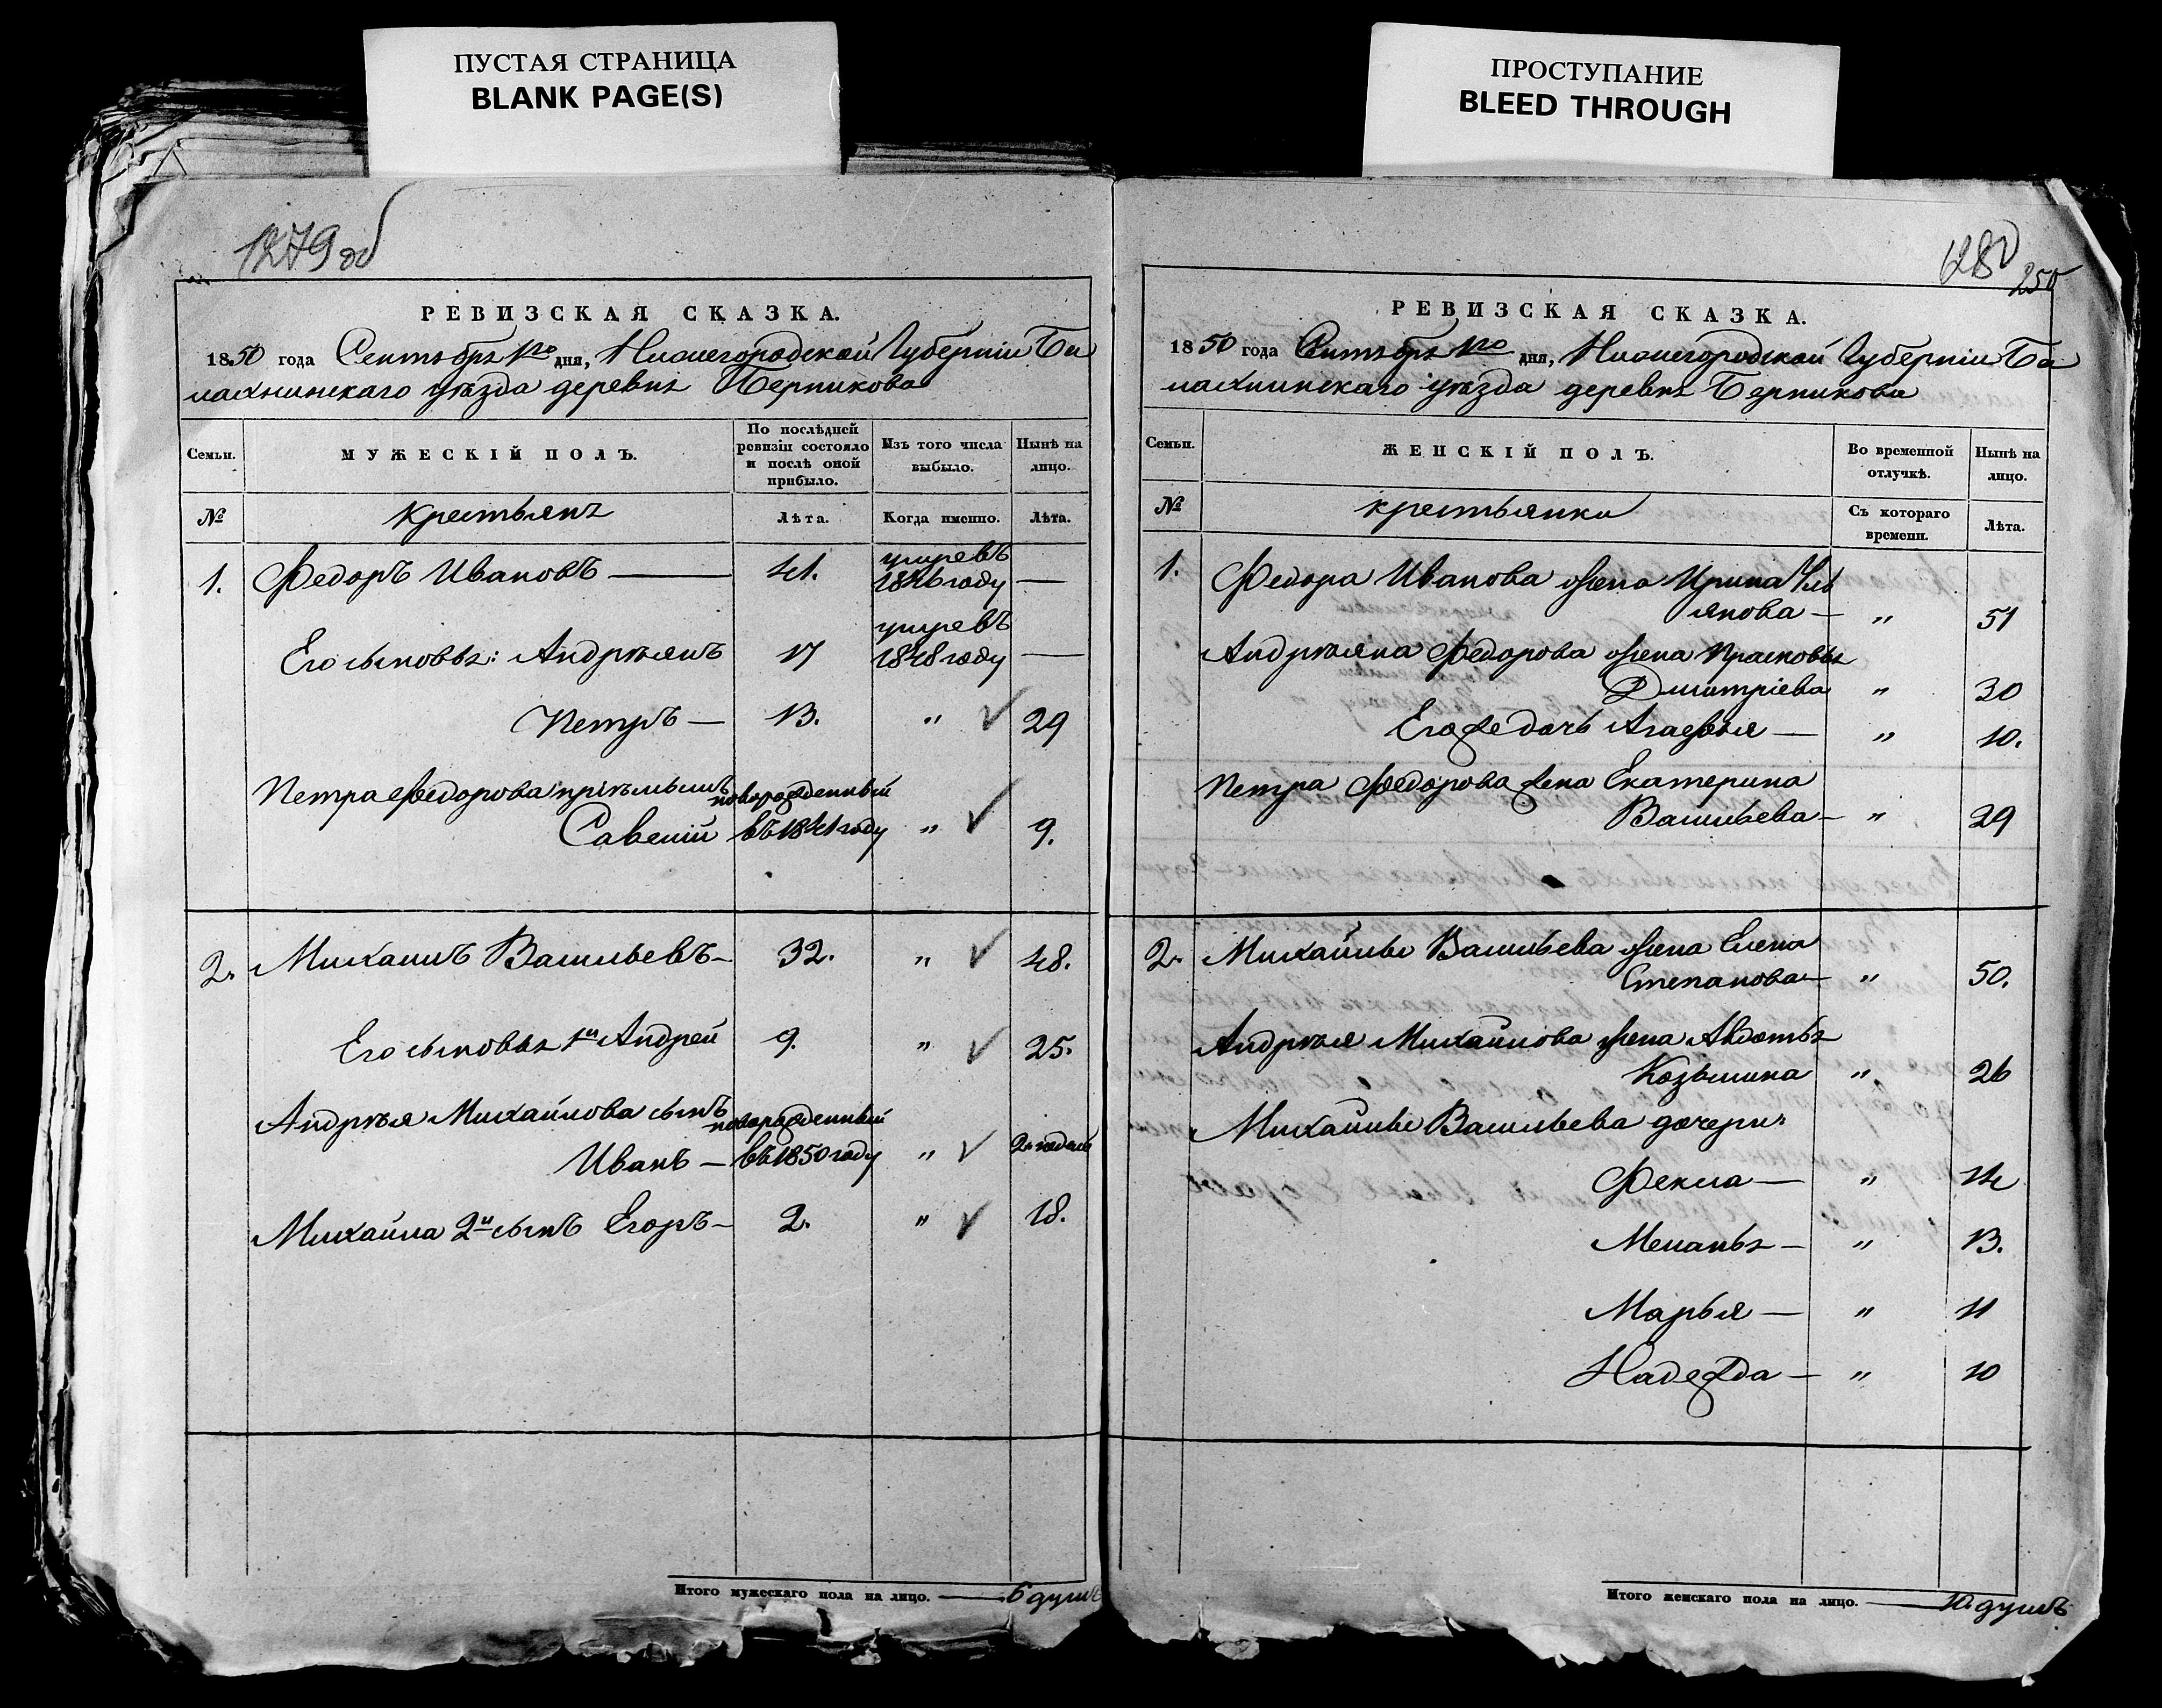 ПУСТАЯ СТРАНИЦА
BLANK PAGE(S)
ПРОСТУПАНИЕ
BLEED THROUGH
1279 об
РЕВИЗСКАЯ СКАЗКА.
1850 года Сентября 1го дня, Нижегородской Губерніи Ба
лахнинскаго уѣзда деревня Берникова
Семьи. МУЖЕСКІЙ ПОЛЪ. По послѣдней ревизіи состояло и послѣ оной прибыло. Изъ того числа выбыло. Нынѣ на лицо.
№ Крестьянъ Лѣта. Когда именно. Лѣта.
1. Федоръ Ивановъ — 41. умревъ 1846 году —
Его сыновья: Андреянъ 17 умревъ 1848 году —
Петръ — 13. " 29
Петра Федорова пріемышъ новорожденный
Савелій въ 1841 году " 9.
2. Михаилъ Васильевъ — 32. " 48.
Его сыновья 1й Андрей 9. " 25.
Андрея Михайлова сынъ новорожденный
Иванъ — въ 1850 году "
Михайла 2й сынъ Егоръ — 2. " 18.
Итого мужескаго пола на лицо. — 6 душъ
1280
250
РЕВИЗСКАЯ СКАЗКА.
1850 года Сентября 1го дня, Нижегородской Губерніи Ба
лахнинскаго уѣзда деревня Берникова
Семьи. ЖЕНСКІЙ ПОЛЪ. Во временной отлучкѣ. Нынѣ на лицо.
№ крестьянки Съ котораго времени. Лѣта.
1. Федора Иванова жена Ирина Уль
янова — " 51
Андреяна Федорова жена Прасковья
Дмитріева " 30
Его же дочь Агафья — " 10.
Петра Федорова жена Екатерина
Васильева — " 29
2. Михайлы Васильева жена Елена
Степанова — " 50.
Андрея Михайлова жена Авдотья
Козьмина " 26
Михайлы Васильева дочери:
Фекла — " 14
Меланья — " 13.
Марья — " 11
Надежда — " 10
Итого женскаго пола на лицо. — 10 душъ